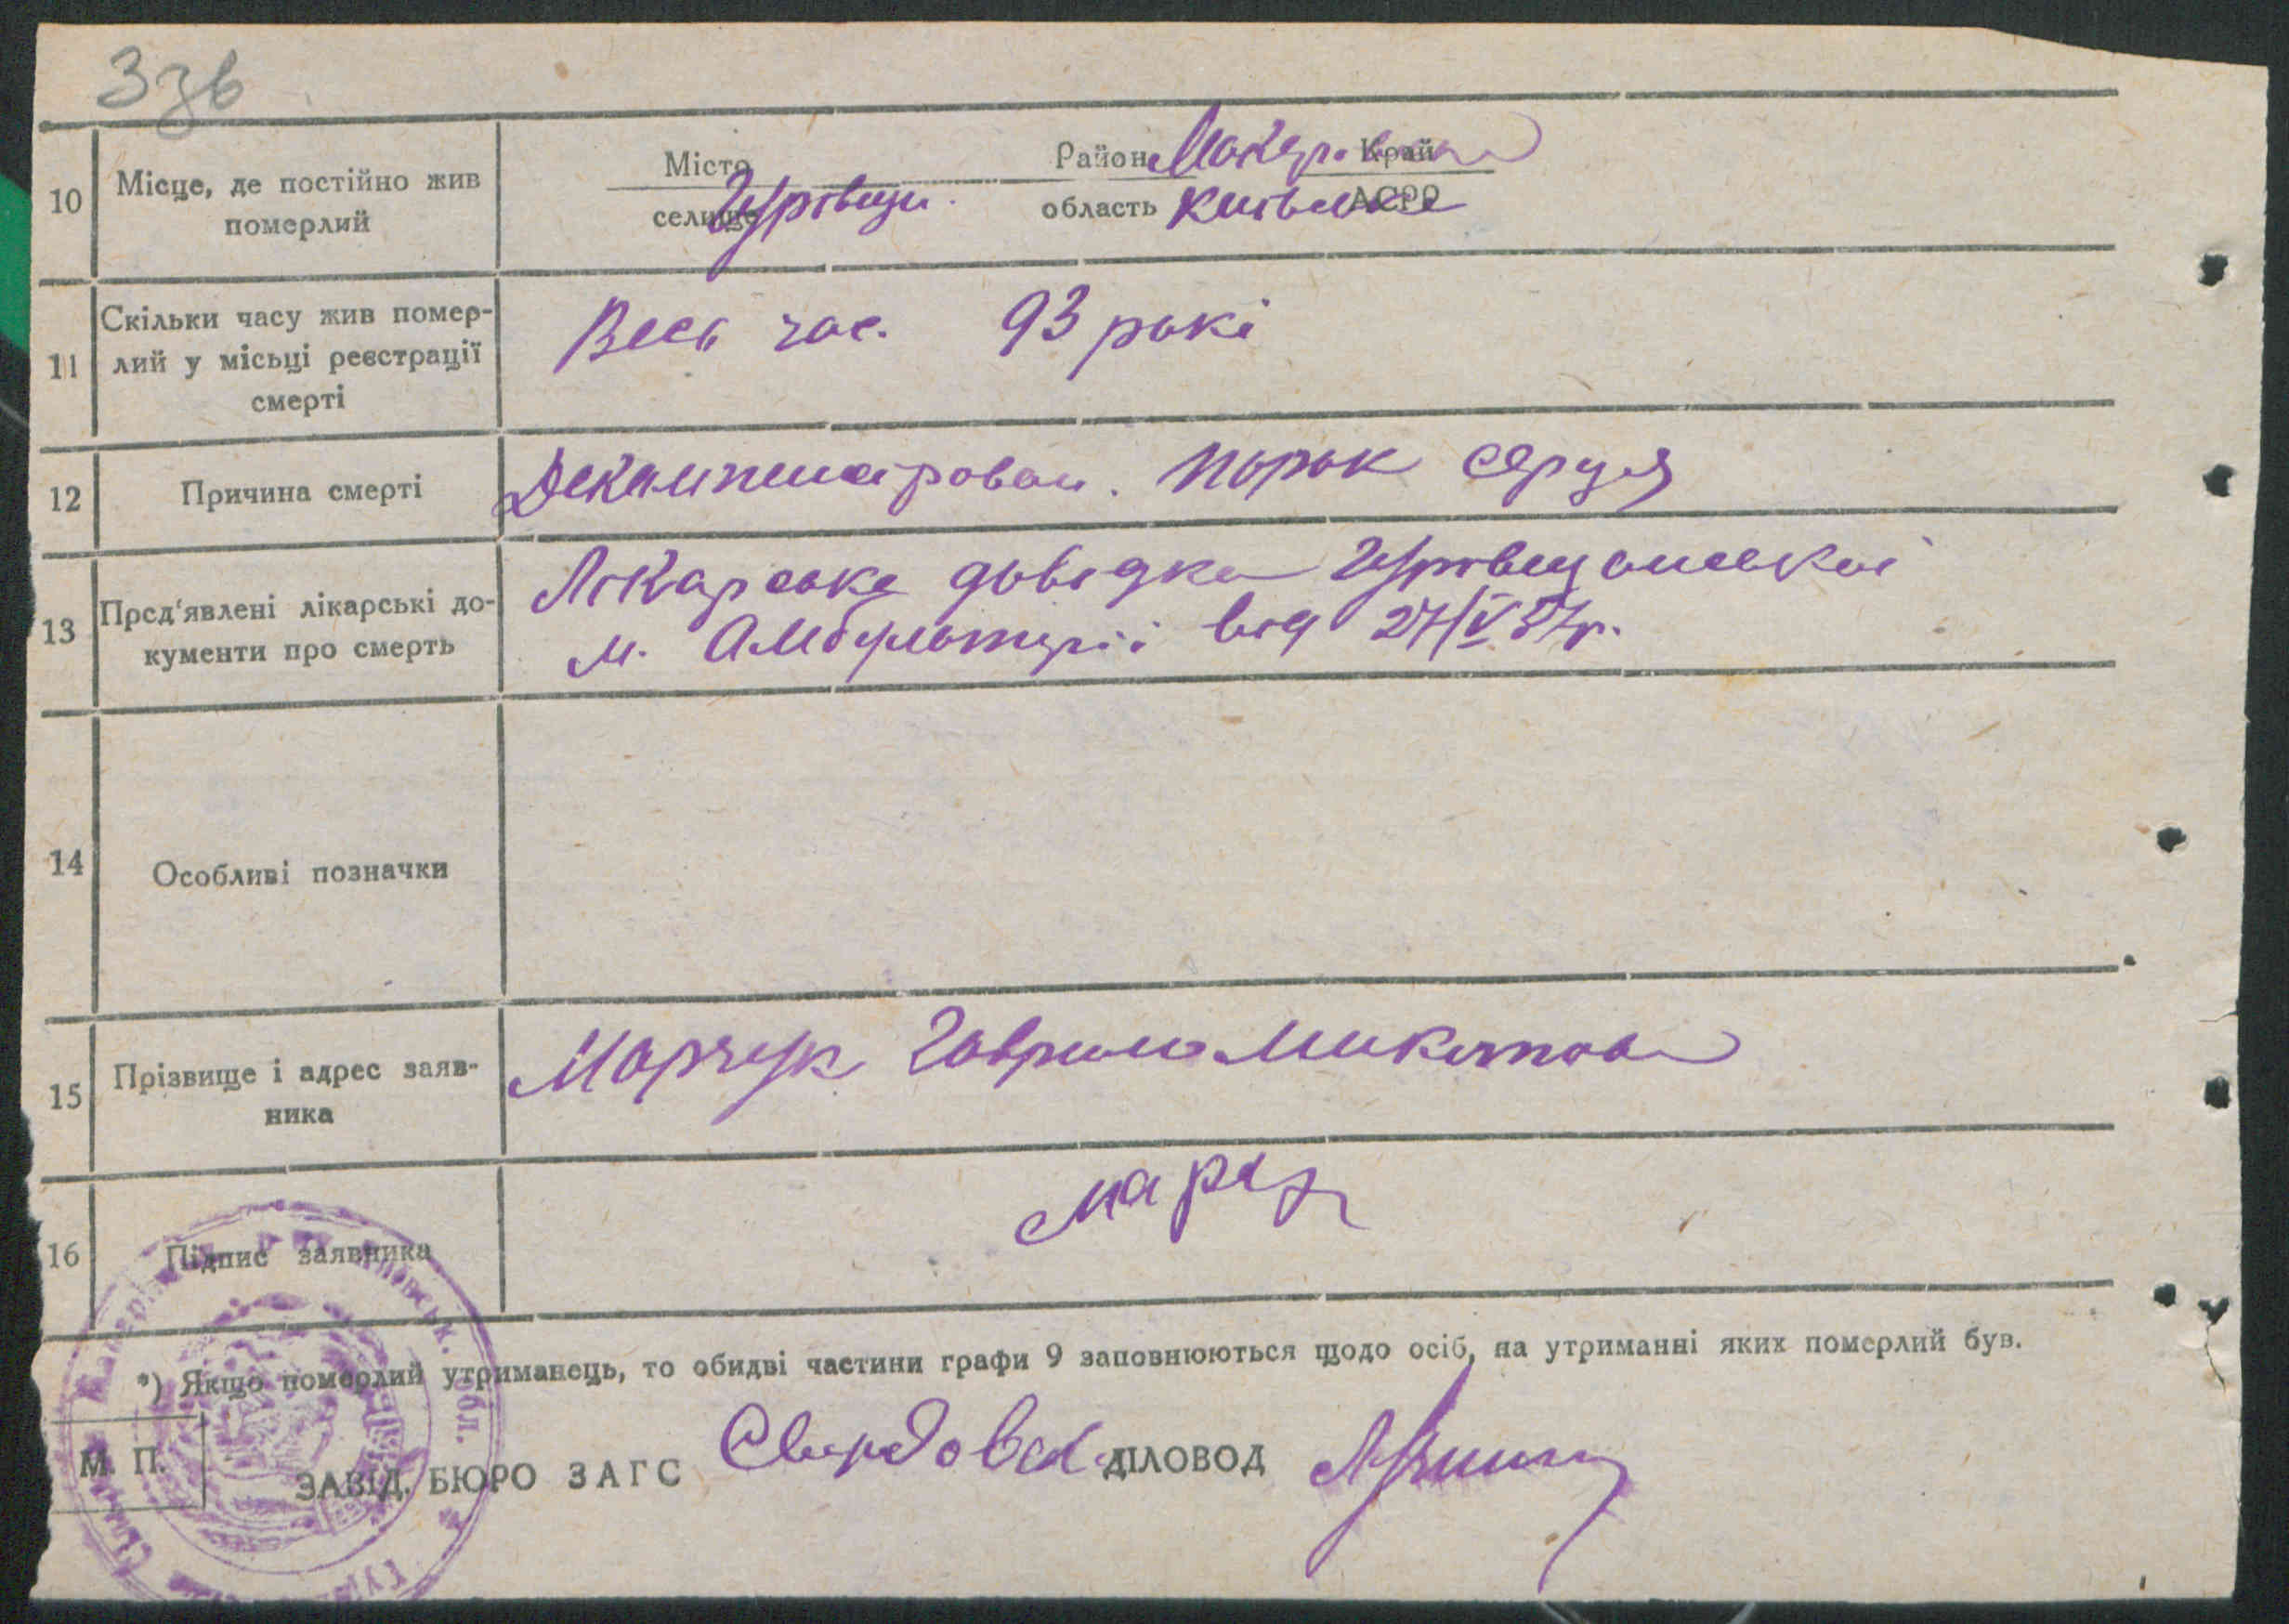 Ззв
10 Місце, де постійно жив померлий
Місто селище Район Макарівськ Край
область Київська АСРР
11 Скільки часу жив помер-
лий у місці реєстрації
смерті
Весь час. 93 рокі
12 Причина смерті
Декампенсірован. порок серця
13 Пред'явлені лікарські до-
кументи про смерть
Лікарська довідка
м. Амбулаторії від 27/V 37р.
14 Особливі позначки
15 Прізвище і адрес заяв-
ника
Марчук Гаврило Микитов
16 Підпис заявника
Марч
*) Якщо померлий утриманець, то обидві частини графи 9 заповнюються щодо осіб, на утриманні яких померлий був.
М. П.
ЗАВІД. БЮРО ЗАГС ДІЛОВОД